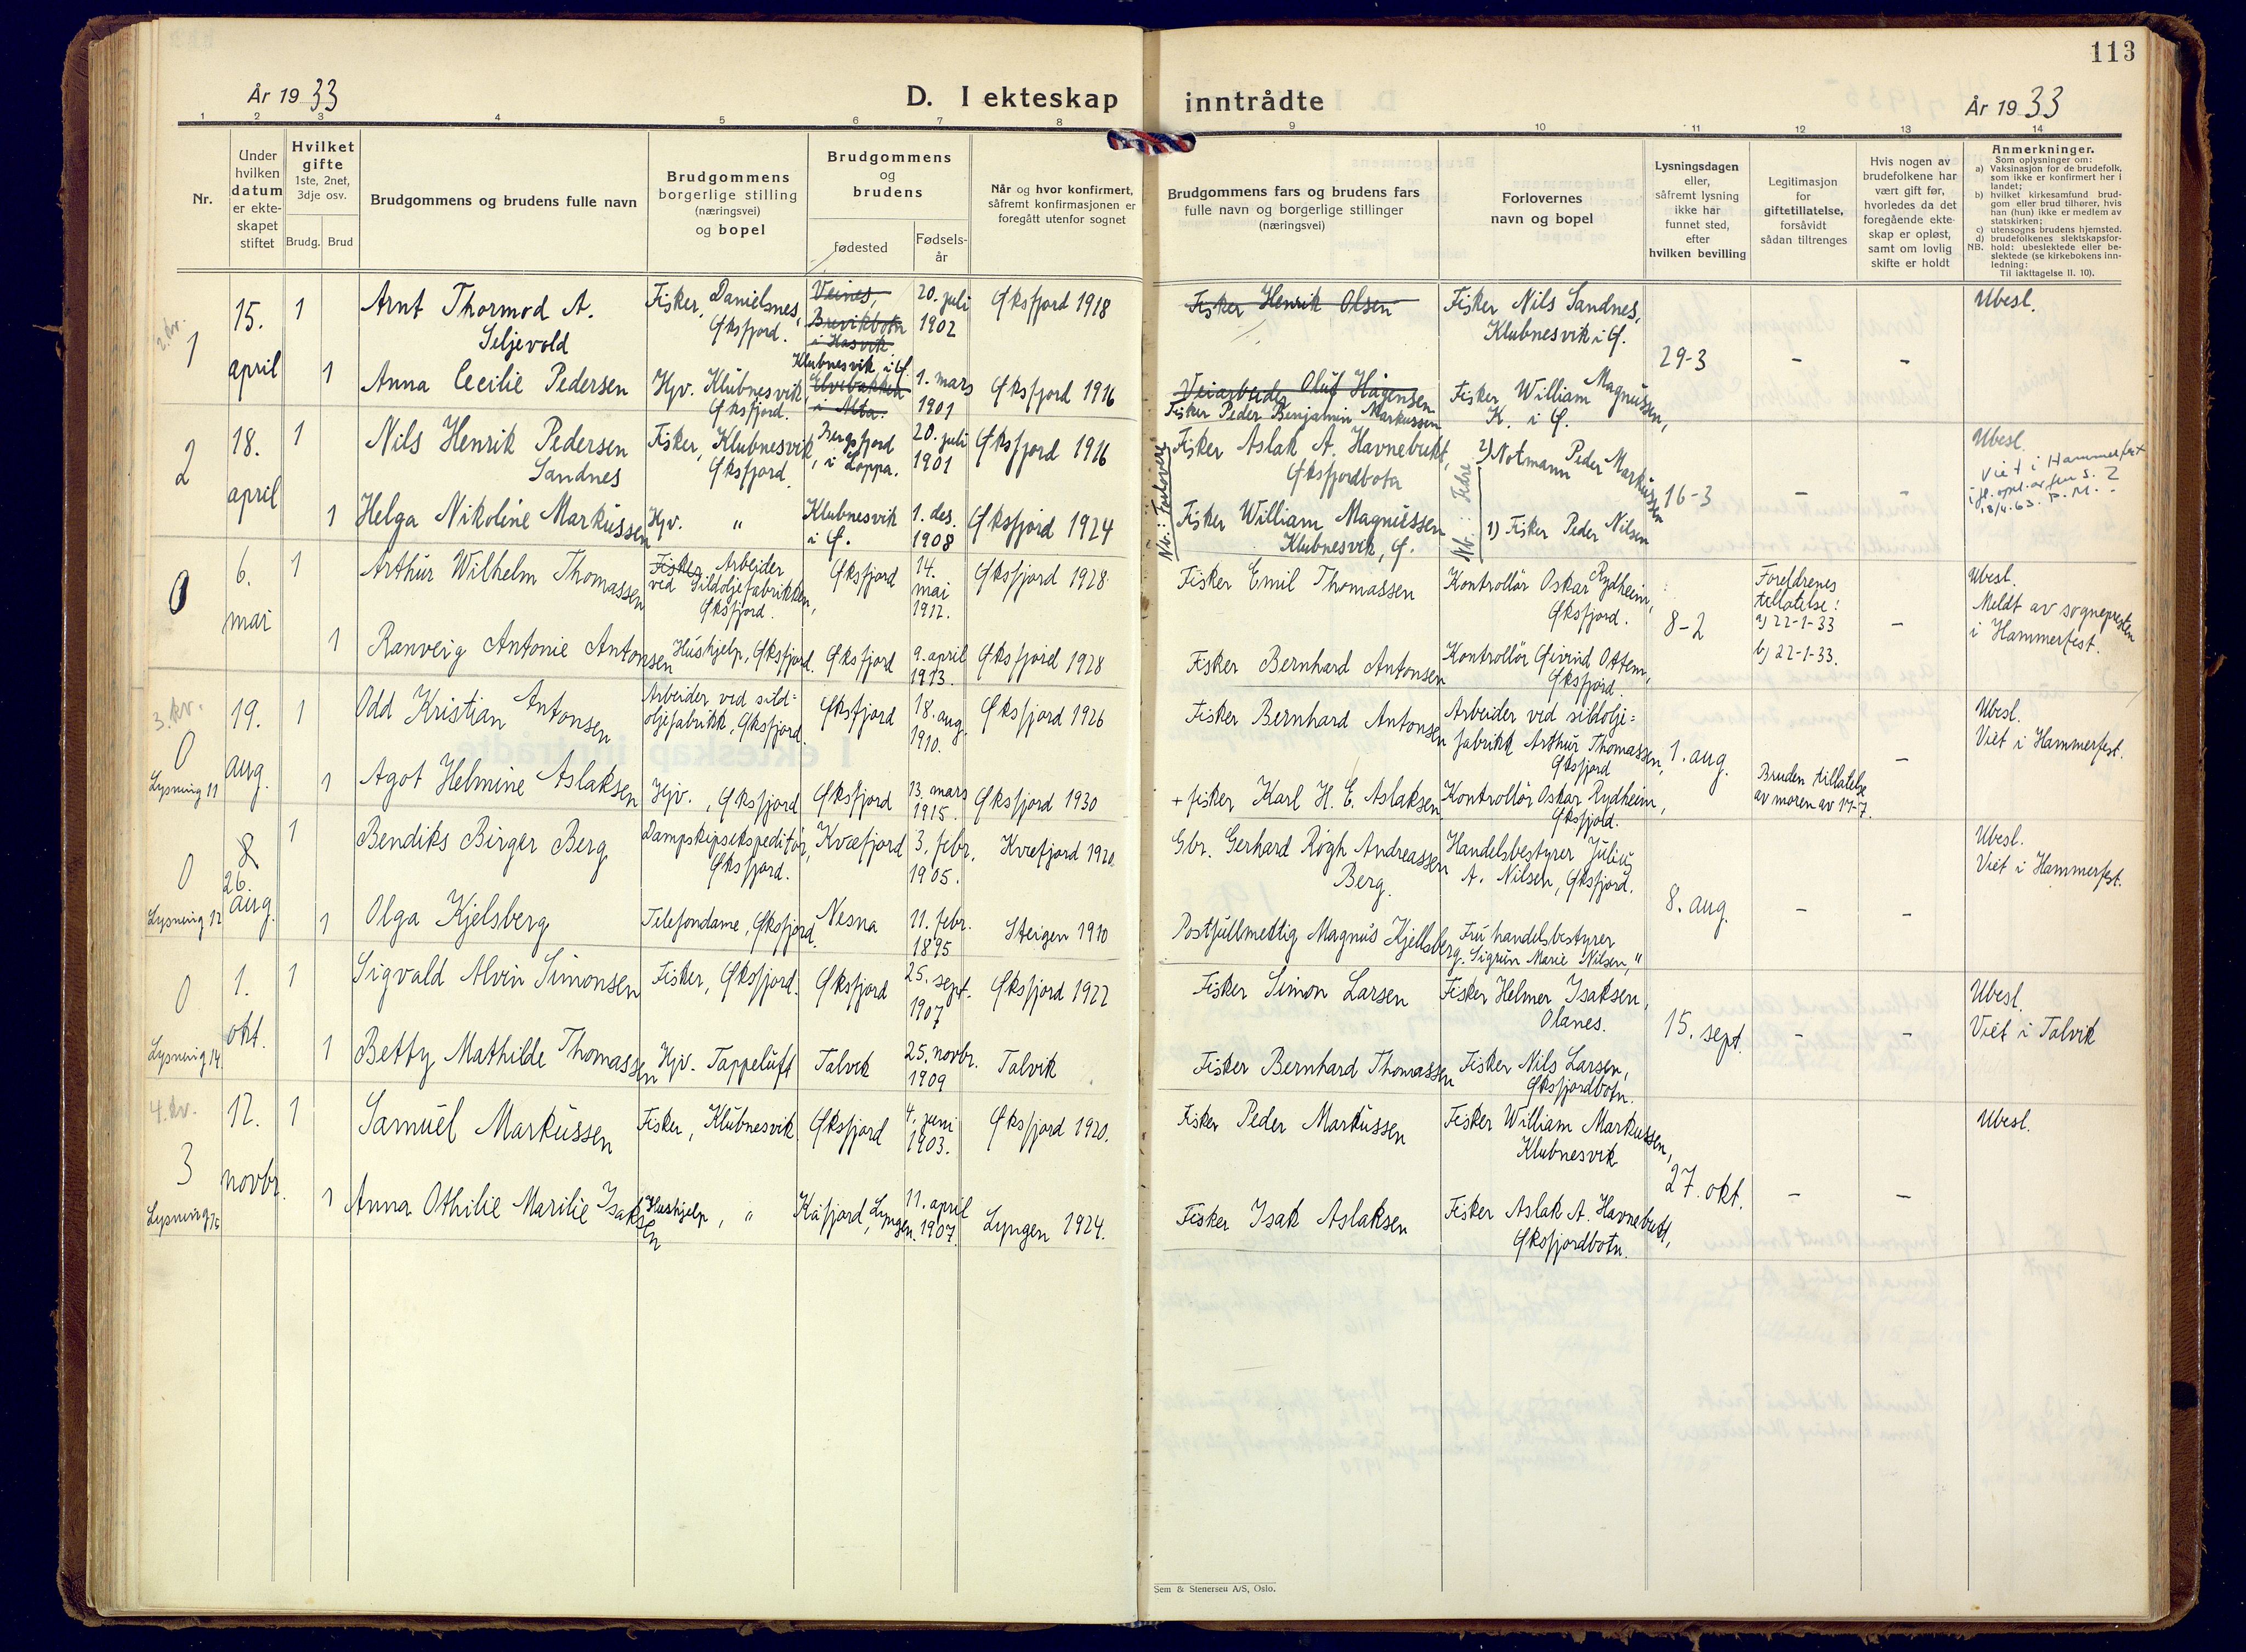 113
År 1933
D. I ekteskap inntrådte
År 1933
1 2 3 4 5 6 7 8 9 10 11 12 13 14
Nr.
Under
hvilken
datum
er ekte-
skapet
stiftet
Hvilket
gifte
1ste, 2net,
3dje osv.
Brudg. Brud
Brudgommens og brudens fulle navn
Brudgommens
borgerlige stilling
(næringsvei)
og bopel
Brudgommens
og
brudens
fødested
Fødsels-
år
Når og hvor konfirmert,
såfremt konfirmasjonen er
foregått utenfor sognet
Brudgommens fars og brudens fars
fulle navn og borgerlige stillinger
(næringsvei)
Forlovernes
navn og bopel
Lysningsdagen
eller,
såfremt lysning
ikke har
funnet sted,
efter
hvilken bevilling
Legitimasjon
for
giftetillatelse,
forsåvidt
sådan tiltrenges
Hvis nogen av
brudefolkene har
vært gift før,
hvorledes da det
foregående ekte-
skap er opløst,
samt om lovlig
skifte er holdt
Anmerkninger.
Som oplysninger om:
a) Vaksinasjon for de brudefolk,
som ikke er konfirmert her i
landet;
b) hvilket kirkesamfund brud-
gom eller brud tilhører, hvis
han (hun) ikke er medlem av
statskirken;
c) utensogns brudens hjemsted.
d) brudefolkenes slektskapsfor-
NB. hold: ubeslektede eller be-
slektede (se kirkebokens inn-
ledning:
Til iakttagelse II. 10).
2. kv.
1
15.
april
1
Arnt Thormod A.
Seljevold
Fisker, Danielsnes,
Øksfjord.
Veines,
Brevikbotn
i Hasvik.
20. juli
1902
Øksfjord 1918
Fisker Henrik Olsen
Fisker Nils Sandnes,
Klubnesvik i Ø.
29-3
-
-
Ubesl.
1
Anna Cecilie Pedersen
Hjv. Klubnesvik,
Øksfjord.
Klubnesvik i Ø.
Elvebakken
i Alta.
1. mars
1901
Øksfjord 1916
Veiarbeider Oluf Hågensen
Fisker Peder Benjamin Markussen
Fisker William Magnussen,
K. i Ø.
2
18.
april
1
Nils Henrik Pedersen
Sandnes
Fisker, Klubnesvik,
Øksfjord.
Bergsfjord
i Loppa.
20. juli
1901
Øksfjord 1916
Nb.: Forlovere
Fisker Aslak A. Havnebukt,
Øksfjordbotn
Nb.: Fedre
2) Notmann Peder Markussen
16-3
-
-
Ubesl.
Viet i Hammerfest
1
Helga Nikoline Markussen
Hjv. "
Klubnesvik
i Ø.
1. des.
1908
Øksfjord 1924
Fisker William Magnussen
Klubnesvik, Ø.
1) Fisker Peder Nilsen
0
6.
mai
1
Arthur Wilhelm Thomassen
Fisker Arbeider
ved Sildoljefabrikken,
Øksfjord.
Øksfjord
14.
mai
1912.
Øksfjord 1928
Fisker Emil Thomassen
Kontrollør Oskar Rydheim,
Øksfjord.
8-2
Foreldrenes
tillatelse:
a) 22-1-33
b) 22-1-33.
-
Ubesl.
Meldt av sognepresten
i Hammerfest.
1
Ranveig Antonie Antonsen
Hushjelp, Øksfjord.
Øksfjord
9. april
1913.
Øksfjord 1928
Fisker Bernhard Antonsen
Kontrollør Øivind Ottem,
Øksfjord.
3. kv.
0
Lysning 11
19.
aug.
1
Odd Kristian Antonsen
Arbeider ved sild-
oljefabrikk, Øksfjord.
Øksfjord
18. aug.
1910.
Øksfjord 1926
Fisker Bernhard Antonsen
Arbeider ved sildolje-
fabrikk Arthur Thomassen,
Øksfjord
1. aug.
-
Ubesl.
Viet i Hammerfest.
1
Agot Helmine Aslaksen
Hjv., Øksfjord
Øksfjord
13. mars
1915.
Øksfjord 1930
+ fisker Karl H. E. Aslaksen
Kontrollør Oskar Rydheim,
Øksfjord.
Bruden tillatelse
av moren av 17-7.
0
Lysning 12
8
26.
aug.
1
Bendiks Birger Berg
Dampskipsekspeditør,
Øksfjord.
Kvæfjord
3. febr.
1905.
Kvæfjord 1920
Gbr. Gerhard Røgh Andreassen
Berg.
Handelsbestyrer Julius
A. Nilsen, Øksfjord.
8. aug.
-
-
Ubesl.
Viet i Hammerfest.
1
Olga Kjelsberg
Telefondame, Øksfjord.
Nesna
11. febr.
1895
Steigen 1910
Postfullmektig Magnus Kjellsberg.
Fru handelsbestyrer
Sigrun Marie Nilsen, "
0
Lysning 14
1.
okt.
1
Sigvald Alvin Simonsen
Fisker, Øksfjord.
Øksfjord
25. sept.
1907
Øksfjord 1922
Fisker Simon Larsen
Fisker Helmer Isaksen,
Olanes.
15. sept.
-
-
Ubesl.
Viet i Talvik
1
Betty Mathilde Thomassen
Hjv. Tappeluft
Talvik
25. novbr.
1909
Talvik
Fisker Bernhard Thomassen
Fisker Nils Larsen,
Øksfjordbotn.
4. kv.
3
Lysning 15
12.
novbr.
1
Samuel Markussen
Fisker, Klubnesvik
Øksfjord
4. juni
1903.
Øksfjord 1920.
Fisker Peder Markussen
Fisker William Markussen,
Klubnesvik
27. okt.
-
-
Ubesl.
1
Anna Othilie Marilie Isaksen
Hushjelp, "
Kåfjord, Lyngen.
11. april
1907.
Lyngen 1924.
Fisker Isak Aslaksen
Fisker Aslak A. Havnebukt,
Øksfjordbotn.
Sem & Stenersen A/S, Oslo.